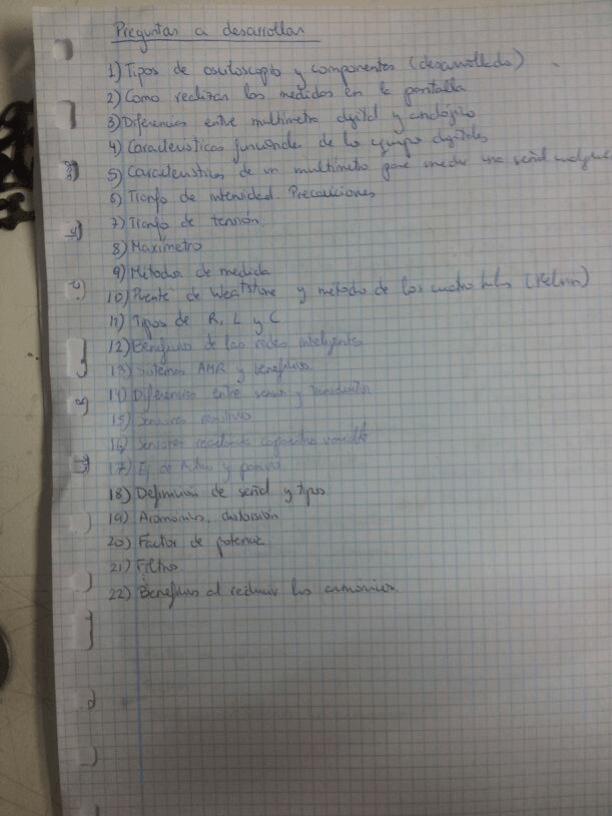 Preguntas a desarrollar
1) Tipos de osciloscopio y componentes (desarrollado)
2) Como realizar las medidas en la pantalla
3) Diferencias entre multimetro digital y analógico
4) Caracteristicas funcionales de los equipos digitales
5) Caracteristicas de un multimetro para medir una señal
6) Tranfo de intensidad Precauciones
7) Tranfo de tensión
8) Maxímetro
9) Métodos de medida
10) Puente de Weatstone y metodo de los cuatro hilos (Kelvin)
11) Tipos de R, L y C
12) Beneficios de las redes inteligentes
13) Sistemas AMR y beneficios
14) Diferencias entre sensor y transductor
15) Sensores
16) Sensores capacitivo variable
17) Ej de Activo y pasivo
18) Definición de señal y tipos
19) Armonicos, distorsión
20) Factor de potencia
21) Filtros
22) Beneficios al reducir los armonicos